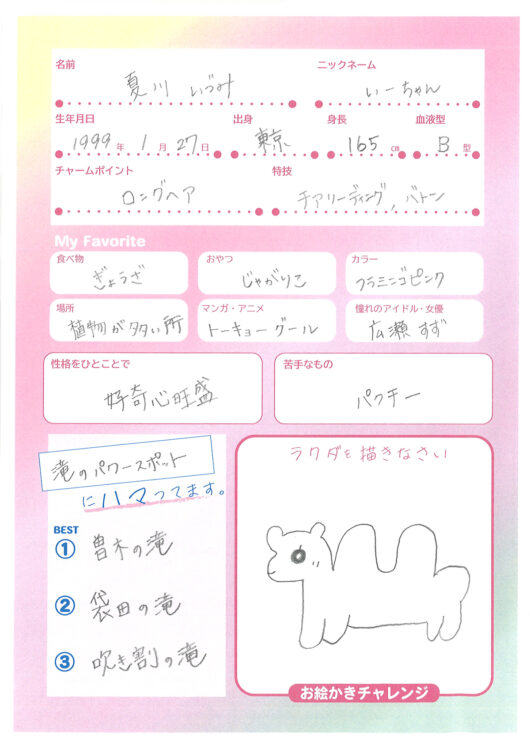 名前
ニックネーム
夏川 いづみ
いーちゃん
生年月日
出身
身長
血液型
1999年 1月 27日
東京
165 cm
B 型
チャームポイント
特技
ロングヘア
チアリーディング, バトン
My Favorite
食べ物
おやつ
カラー
ぎょうざ
じゃがりこ
フラミンゴピンク
場所
マンガ・アニメ
憧れのアイドル・女優
植物が多い所
トーキョーグール
広瀬 すず
性格をひとことで
苦手なもの
好奇心旺盛
パクチー
滝のパワースポット
にハマってます。
BEST
① 曽木の滝
② 袋田の滝
③ 吹き割の滝
ラクダを描きなさい
お絵かきチャレンジ